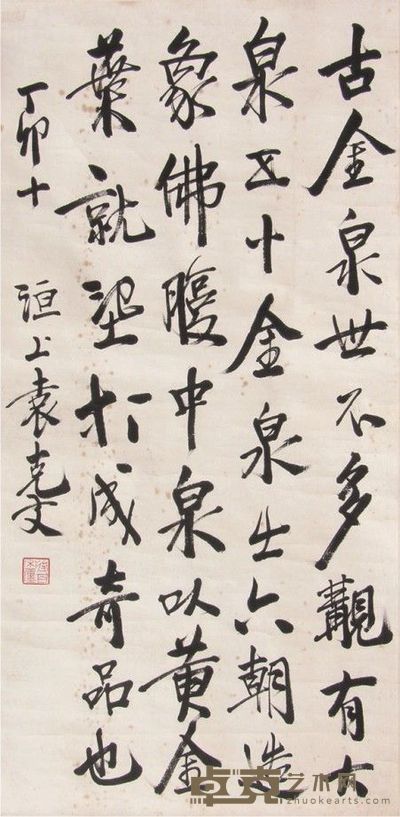 古金泉世不多覯有大
泉五十金泉出六朝造
象佛腹中泉以黄金
葉就打成奇品也
丁卯十
洹上袁克文
卓克艺术网
zhuokearts.com